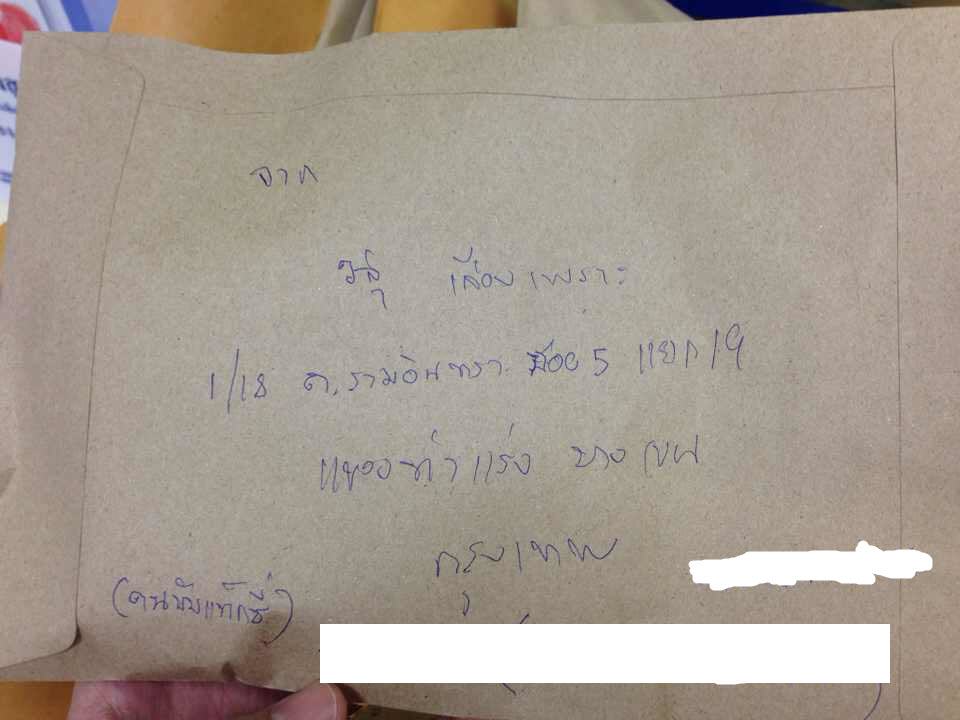 จาก
วิสุ เกื่อบเพราะ
1/18 ถ.รามอินทรา ซอย 5 แยก 19
แขวงท่าแร้ง บางเขน
กรุงเทพ
(คนขับแท็กซี่)